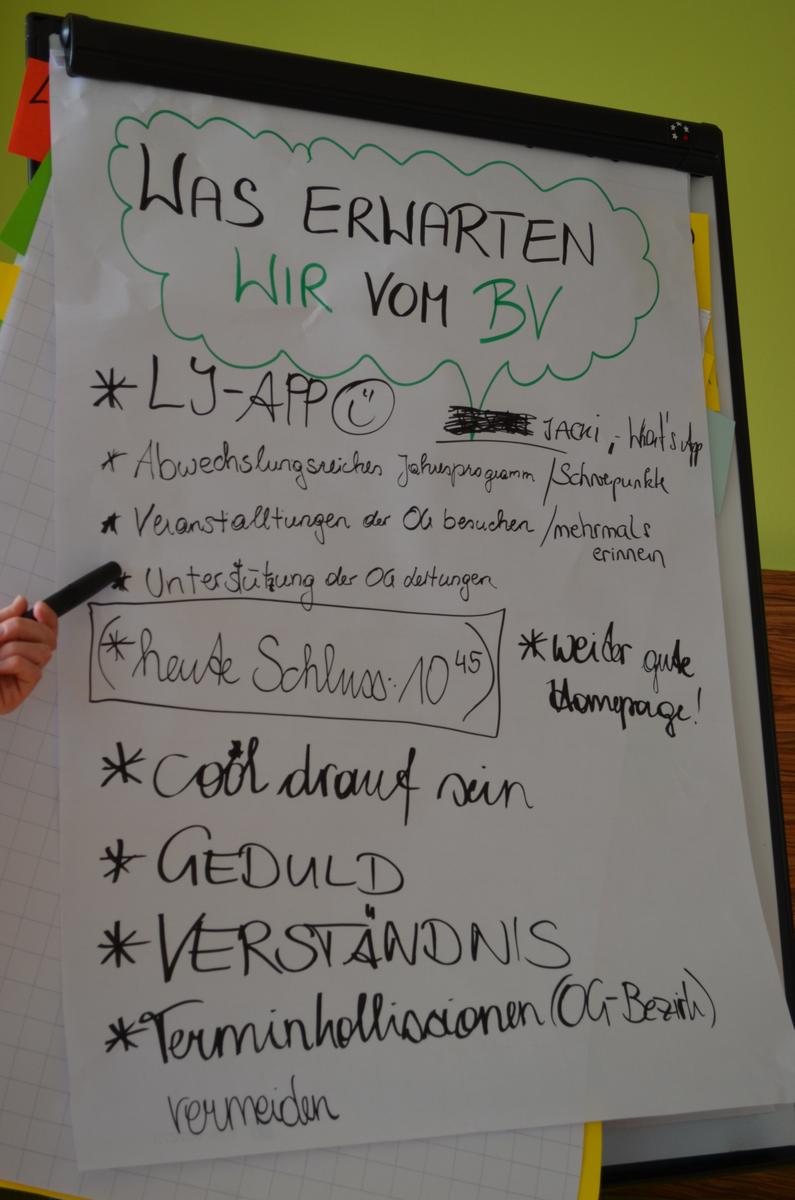 WAS ERWARTEN
WIR VOM BV
* LJ-APP
JACKI, - What's App
* Abwechslungsreiches Jahresprogramm / Schwepunkte
* Veranstalltungen der OG besuchen / mehrmals
erinnern
* Unterstützung der OG Leitungen
(* heute Schluss: 10 45)
* weiter gute
Homepage!
* cool drauf sein
* GEDULD
* VERSTÄNDNIS
* Terminkollissionen (OG-Bezirk)
vermeiden